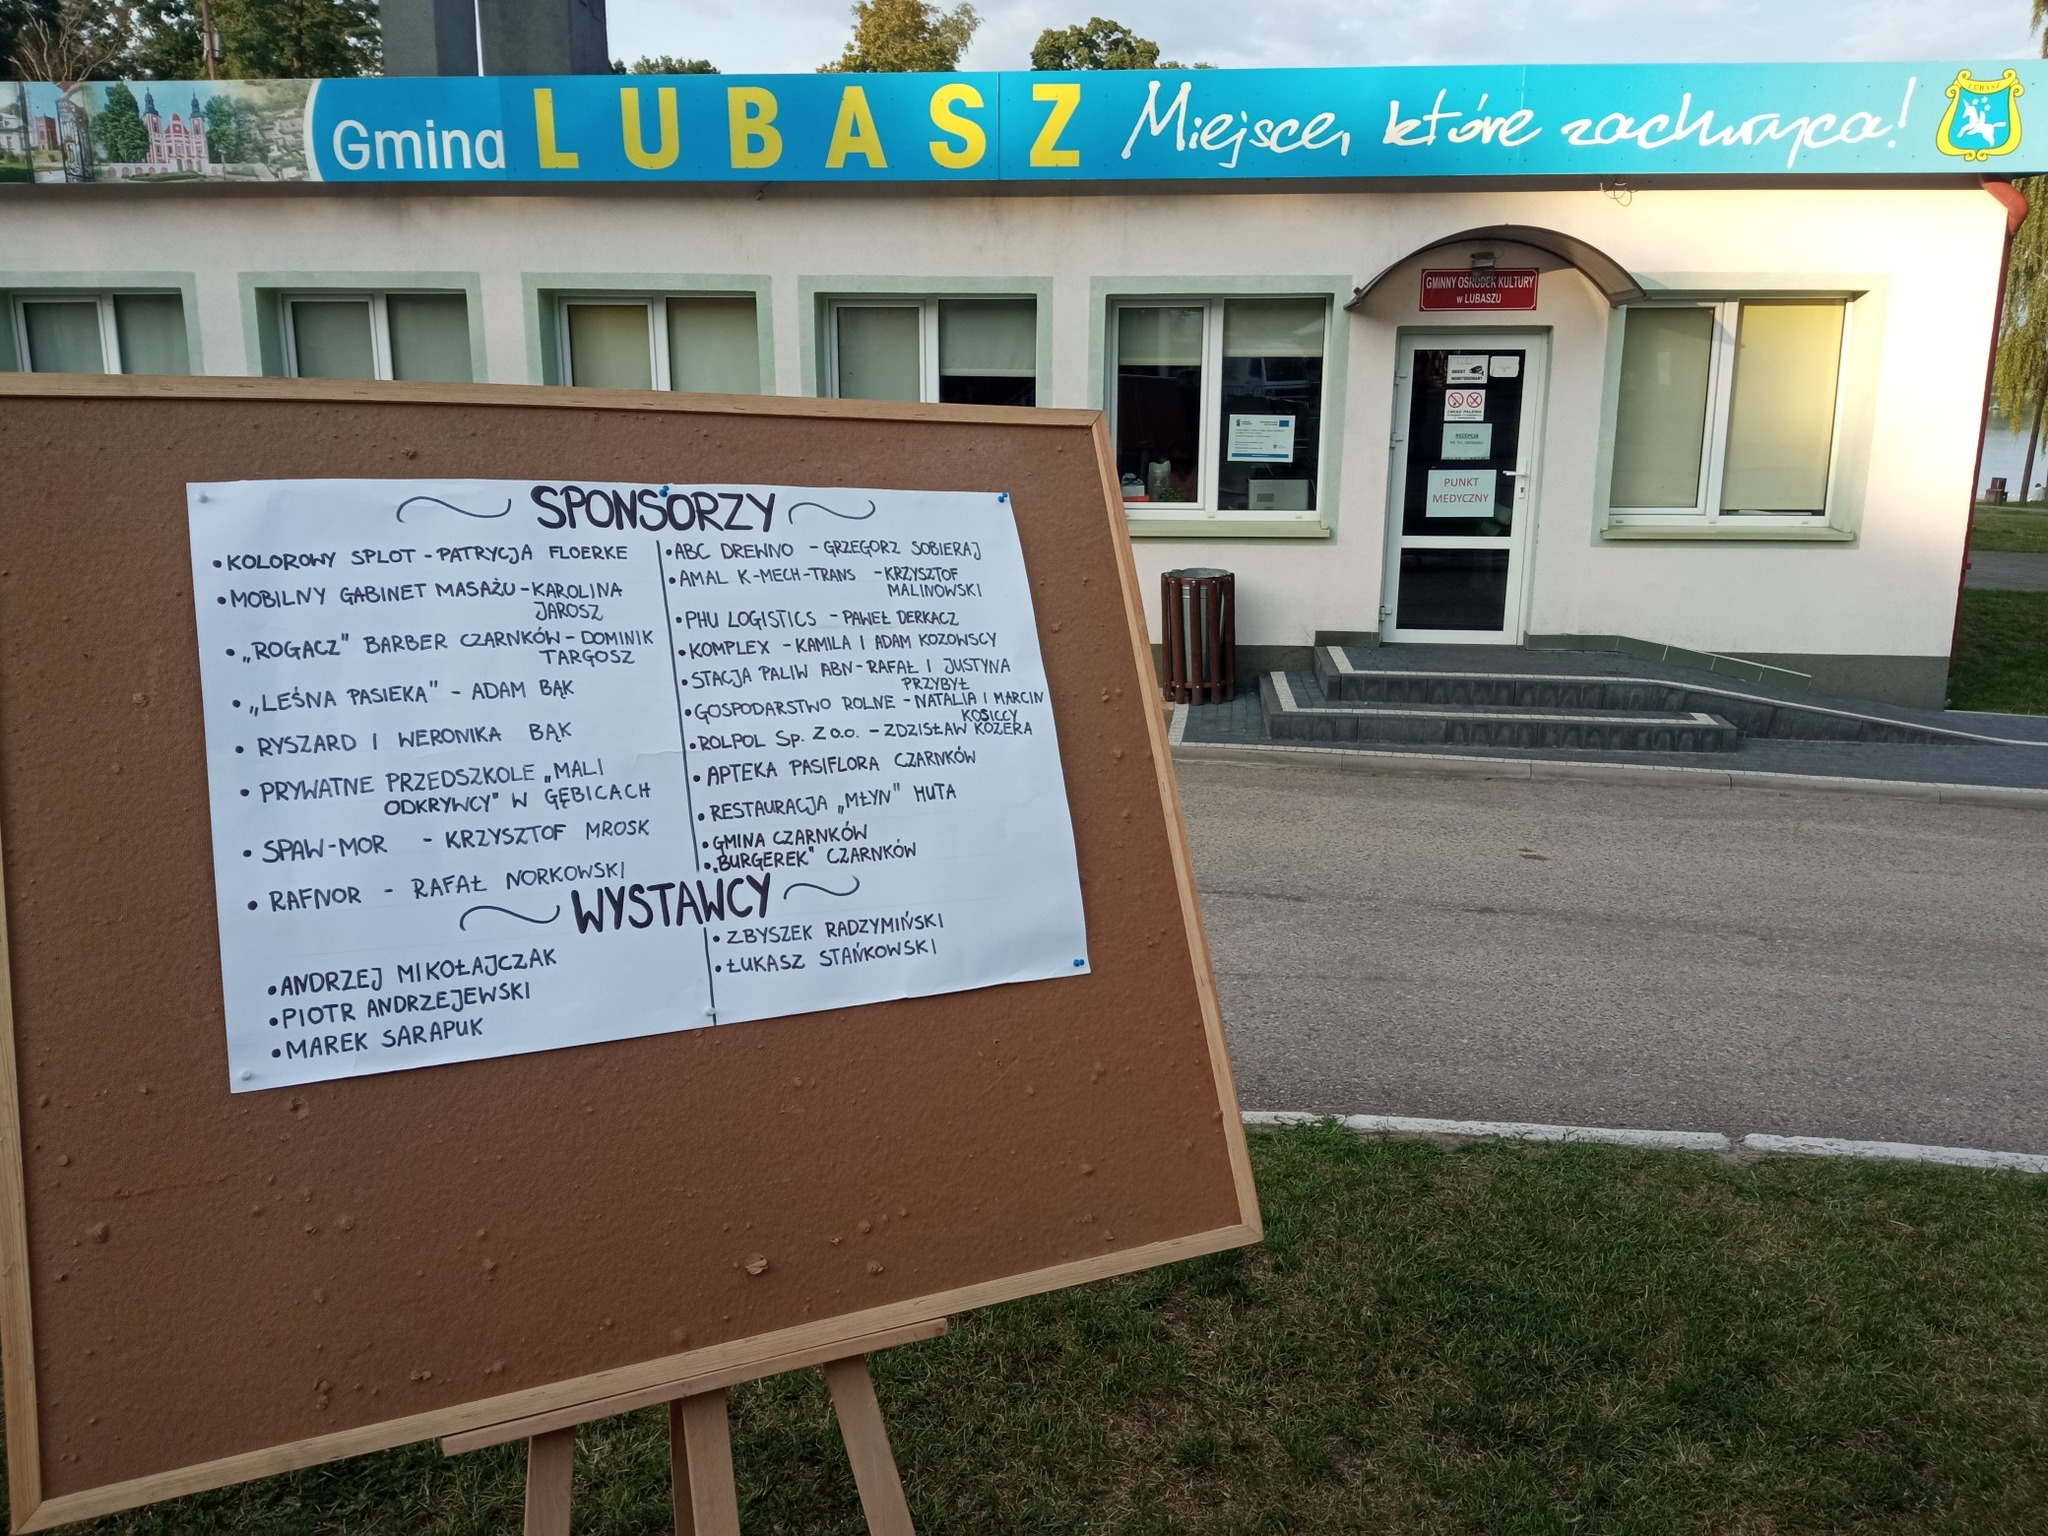 Gmina LUBASZ Miejsce, które zachwyca!
LUBASZ
GMINNY OŚRODEK KULTURY
w LUBASZU
OBIEKT
MONITOROWANY
ZAKAZ PALENIA
RECEPCJA
PUNKT
MEDYCZNY
SPONSORZY
• KOLOROWY SPLOT - PATRYCJA FLOERKE
• MOBILNY GABINET MASAŻU - KAROLINA
JAROSZ
• „ROGACZ" BARBER CZARNKÓW - DOMINIK
TARGOSZ
• „LEŚNA PASIEKA" - ADAM BĄK
• RYSZARD I WERONIKA BĄK
• PRYWATNE PRZEDSZKOLE „MALI
ODKRYWCY" W GĘBICACH
• SPAW-MOR - KRZYSZTOF MROSK
• RAFNOR - RAFAŁ NORKOWSKI
• ABC DREWNO - GRZEGORZ SOBIERAJ
• AMAL K-MECH-TRANS - KRZYSZTOF
MALINOWSKI
• PHU LOGISTICS - PAWEŁ DERKACZ
• KOMPLEX - KAMILA I ADAM KOZOWSCY
• STACJA PALIW ABN - RAFAŁ I JUSTYNA
PRZYBYŁ
• GOSPODARSTWO ROLNE - NATALIA I MARCIN
KOSICCY
• ROLPOL Sp. Z o.o. - ZDZISŁAW KOZERA
• APTEKA PASIFLORA CZARNKÓW
• RESTAURACJA „MŁYN" HUTA
• GMINA CZARNKÓW
• „BURGEREK" CZARNKÓW
WYSTAWCY
• ANDRZEJ MIKOŁAJCZAK
• PIOTR ANDRZEJEWSKI
• MAREK SARAPUK
• ZBYSZEK RADZYMIŃSKI
• ŁUKASZ STAŃKOWSKI